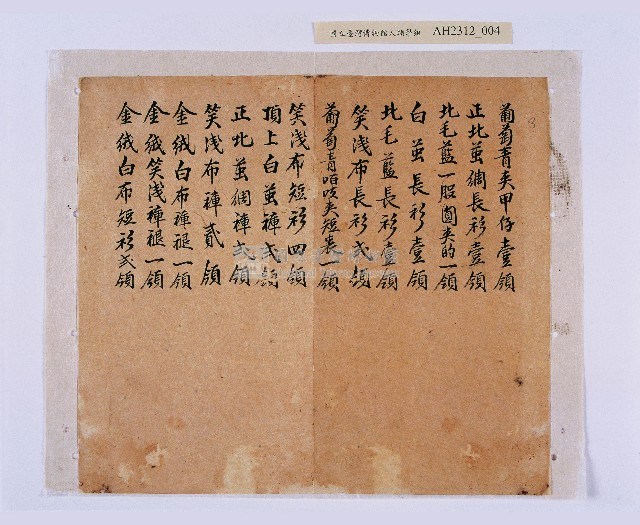 AH2312_004
葡萄青夾甲仔壹領
正北茧綢長衫壹領
北毛藍一股圓夾的一領
白茧長衫壹領
北毛藍長衫壹領
笑浅布長衫弍領
葡萄青咱吱夾短袄一領
笑浅布短衫四領
頂上白茧褲弍領
正北茧綢褲弍領
笑浅布褲貳領
金絨白布褲褪一領
金絨笑浅褲褪一領
金絨白布短衫弍領